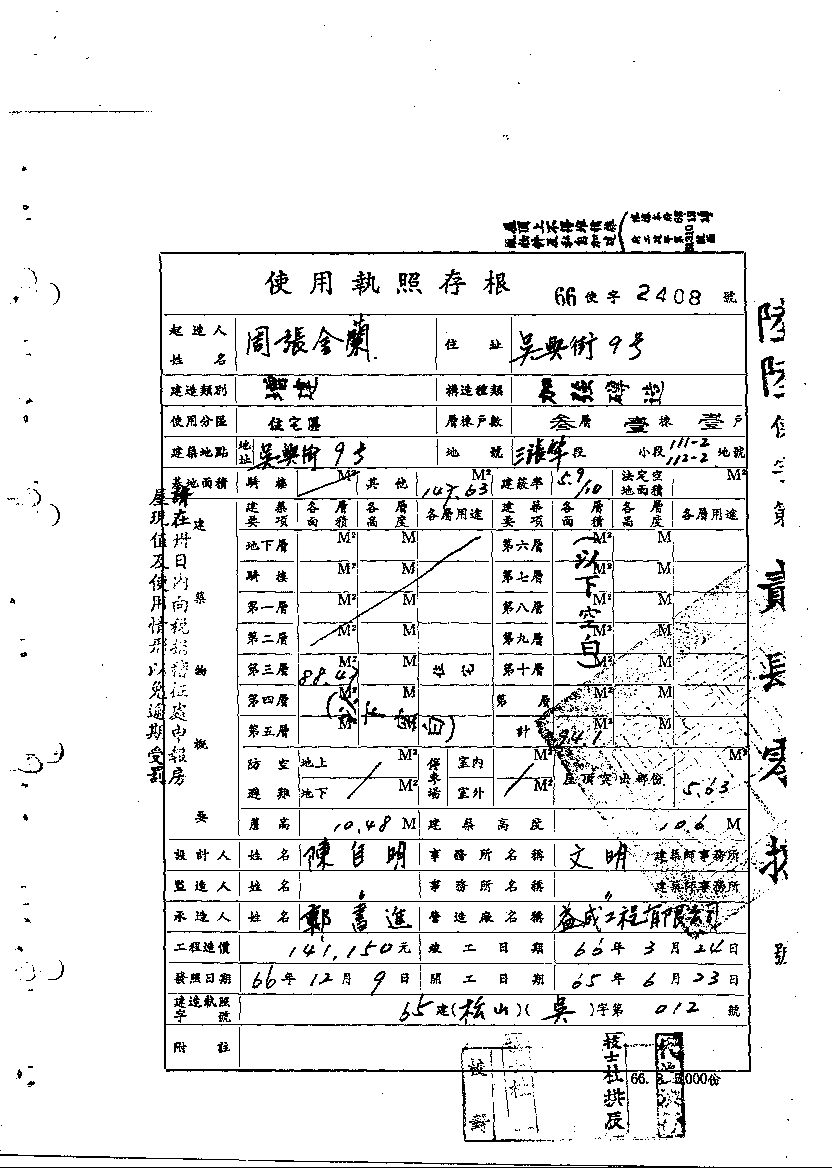 屋頂上不得堆積雜
使用執照存根
66 使字 2408 號
起造人姓名 周張金蘭 住址 吳興街9号
建造類別 增建 構造種類 加強磚造
使用分區 住宅區 層棟戶數 叁層 壹棟 壹戶
建築地點 地址 吳興街9号 地號 三張犂段 小段 111-2 112-2 地號
基地面積 騎樓 M² 其他 147.63 M² 建蔽率 5.9/10 法定空地面積 M²
建築物概要
建築要項 各層面積 各層高度 各層用途 建築要項 各層面積 各層高度 各層用途
地下層 M² M 第六層 M² M
騎樓 M² M 第七層 M² M
第一層 M² M 第八層 M² M
第二層 M² M 第九層 M² M
第三層 88.47 M² M 住宅 第十層 M² M
第四層 M² M 第 層 M² M
第五層 M² M 計 94.1 M² M
(以下空白)
(以下空白)
防空避難 地上 M² 地下 M² 停車場 室內 M² 室外 M² 屋頂突出部份 5.63 M²
簷高 10.48 M 建築高度 10.6 M
設計人 姓名 陳自明 事務所名稱 文明 建築師事務所
監造人 姓名 〃 事務所名稱 〃 建築師事務所
承造人 姓名 鄭書進 營造廠名稱 益成工程有限公司
工程造價 141,150元 竣工日期 66年3月24日
發照日期 66年12月9日 開工日期 65年6月23日
建造執照字號 65建(松山)(吳)字第 012 號
附註
請在卅日內向稅捐稽征處申報房
屋現值及使用情形以免逾期受罰
技士杜拱辰
校對
責長零
號